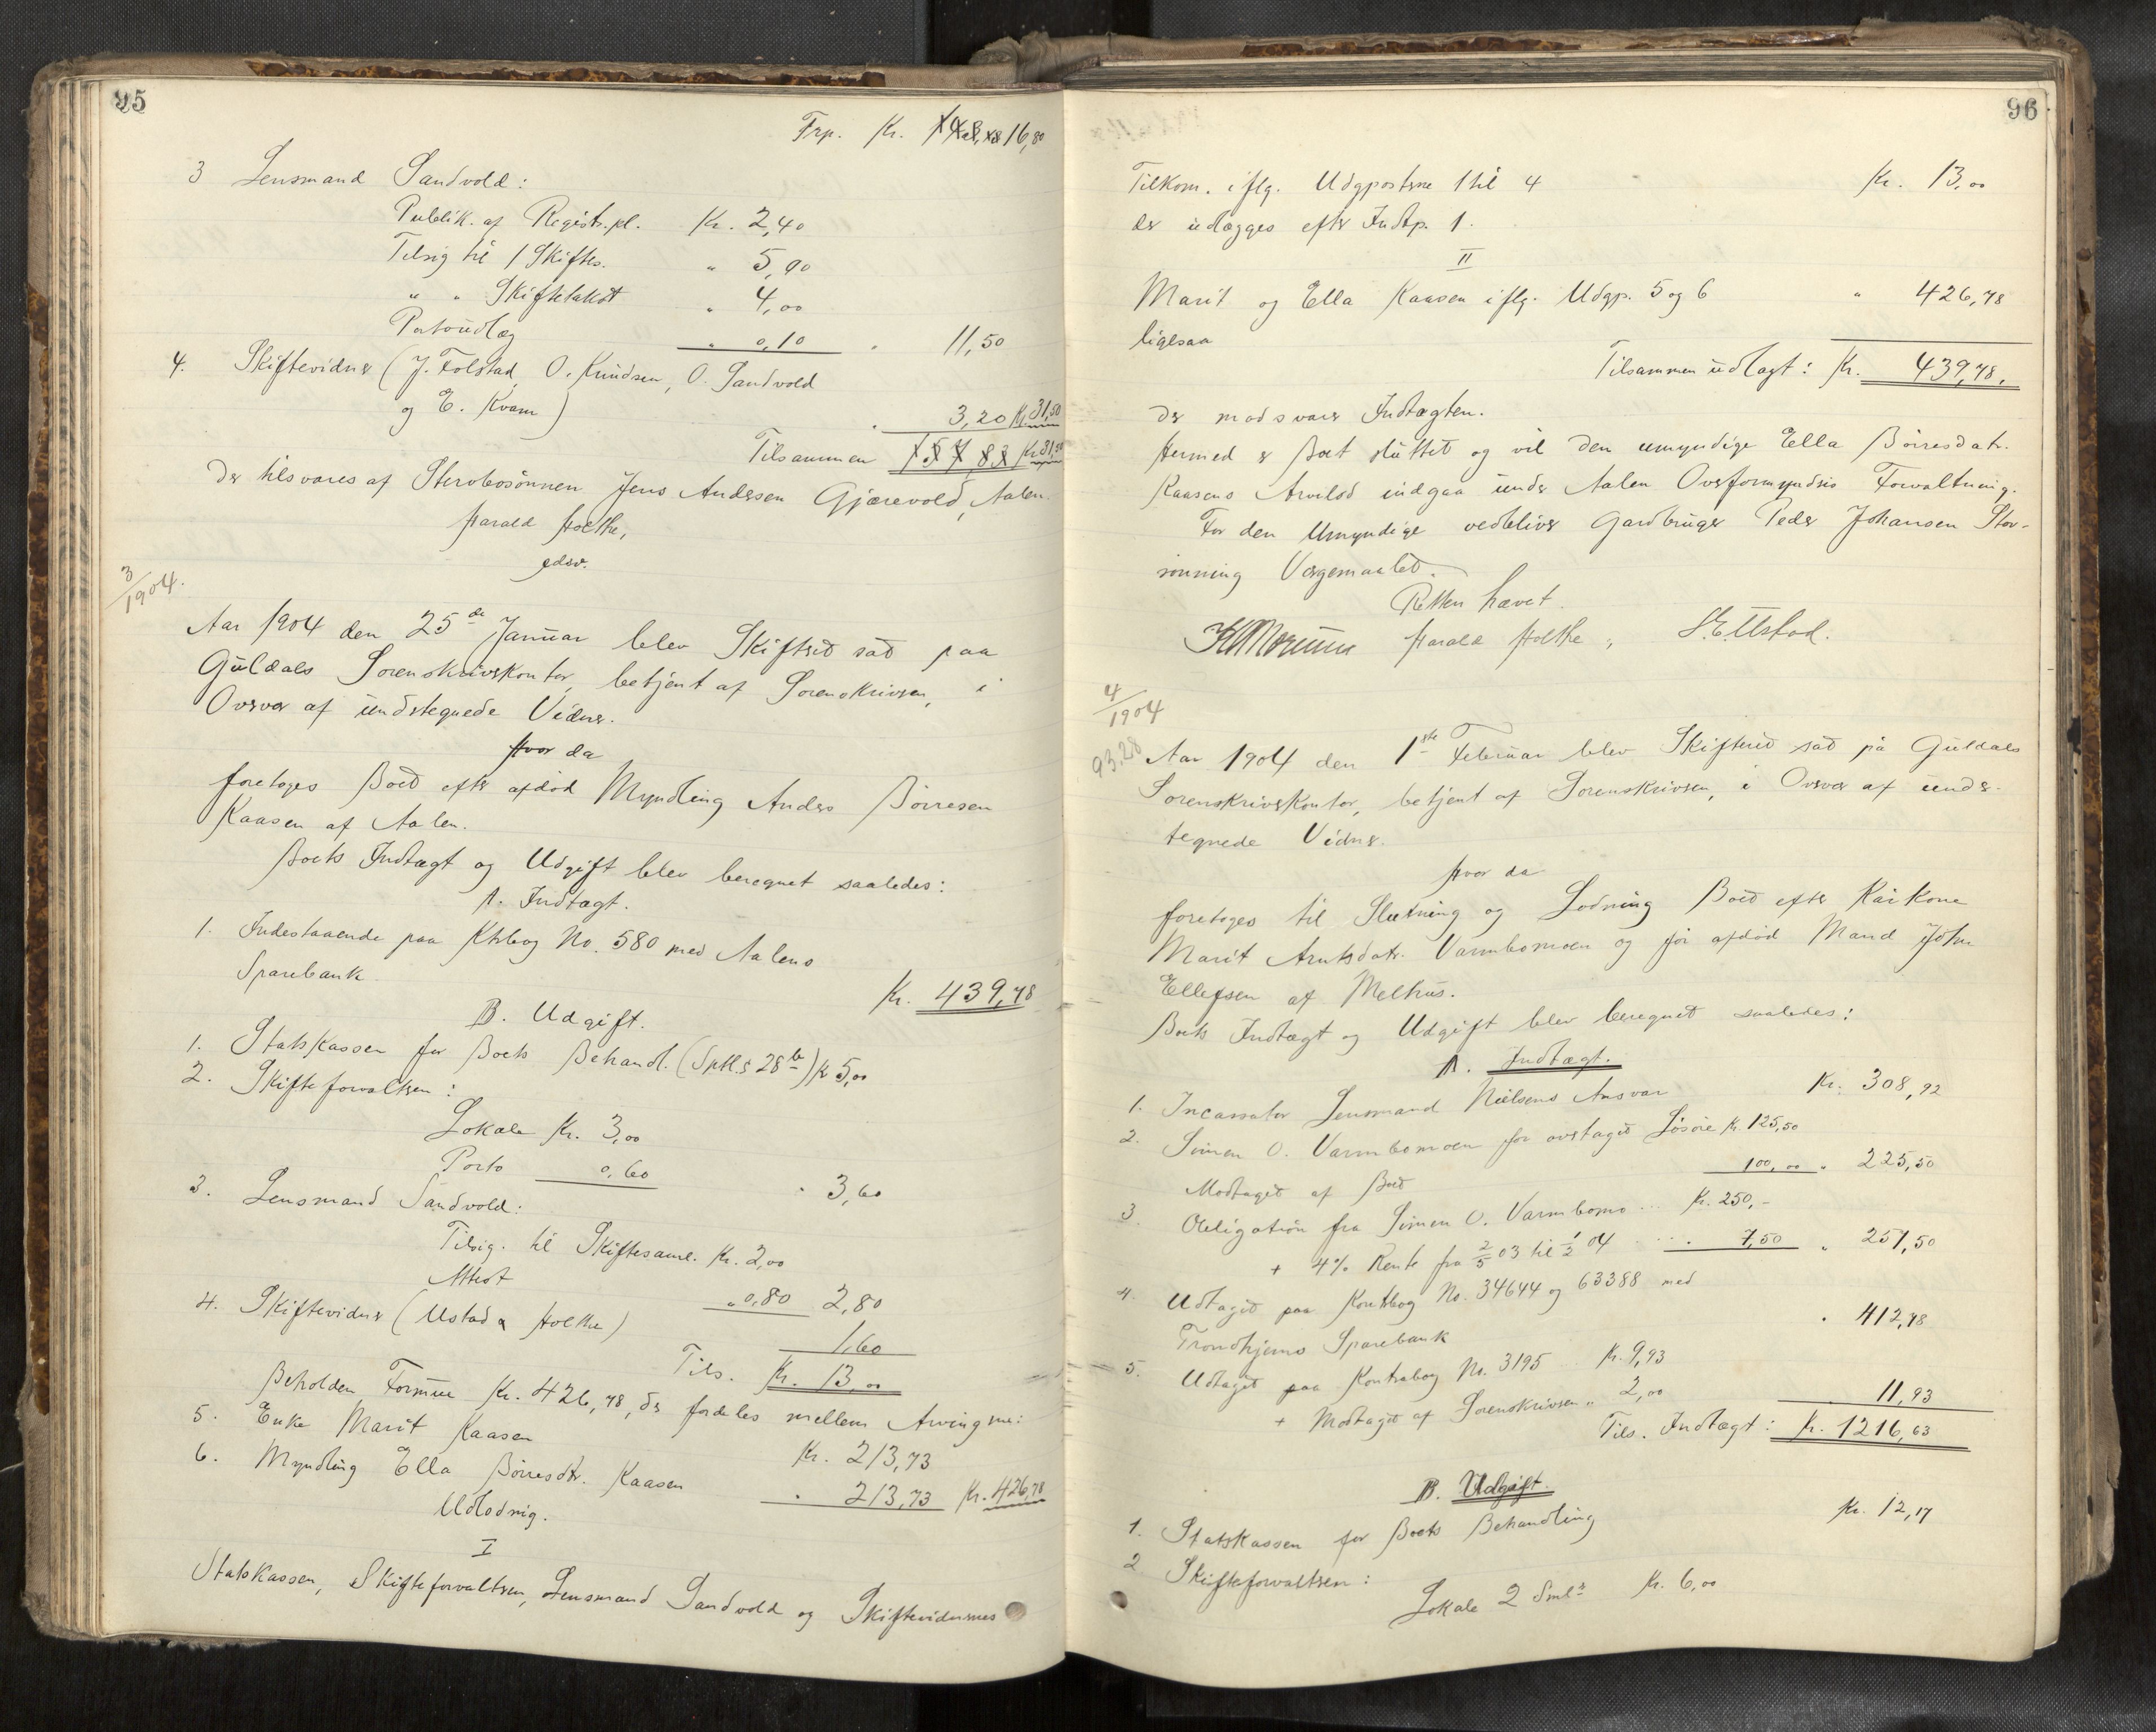 95
Trp. Kr. 16,80
3 Lensmand Sandvold:
Publik. af Registr.pl. Kr. 2,40
Tilsig til 1 Skiftes. " 5,00
" " Skiftetakst " 4,00
Portoudlæg " 0,10 " 11,50
4. Skiftevidner (J. Folstad, O. Knudsen, O. Sandvold
og E. Kvam) " 3,20 Kr. 31,50
Tilsammen Kr. 31,50
der tilsvares af Stervbosønnen Jens Andersen Gjærevold, Aalen.
Harald Holthe,
edsv.
3/1904.
Aar 1904 den 25de Januar blev Skifteret sat paa
Guldals Sorenskriverkontor, betjent af Sorenskriveren, i
Overvær af undertegnede Vidner.
Hvor da
foretoges Boet efter afdød Myndling Anders Børresen
Kaasen af Aalen.
Boets Indtægt og Udgift blev beregnet saaledes:
A. Indtægt.
1. Indestaaende paa Ktrbog No. 580 med Aalens
Sparebank Kr. 439,78
B. Udgift.
1. Statskassen for Boets Behandl. (Sptl. § 28 b) Kr 5,00
2. Skifteforvalteren:
Lokale Kr. 3,00
Porto 0,60 " 3,60
3. Lensmand Sandvold:
Tilsig. til Skiftesaml. Kr. 2,00
Attest " 0,80 2,80
4. Skiftevidner (Ustad & Holthe) 1,60
Tils. Kr. 13,00
Beholden Formue Kr. 426,78, der fordeles mellem Arvingerne:
5. Enke Marit Kaasen Kr. 213,73
6. Myndling Ella Børresdtr. Kaasen " 213,73 Kr. 426,78
Udlodning.
I
Statskassen, Skifteforvalteren, Lensmand Sandvold og Skiftevidnernes
96
Tilkom. iflg. Udgposterne 1 til 4 Kr. 13,00
der udlægges efter Indtp. 1.
II
Marit og Ella Kaasen iflg. Udgp. 5 og 6 " 426,78
ligesaa
Tilsammen udlagt: Kr. 439,78.
der modsvarer Indtægten.
Hermed er Boet sluttet og vil den umyndige Ella Børresdatr.
Kaasens Arvelod indgaa under Aalen Overformynderis Forvaltning.
For den Umyndige vedbliver Gardbruger Peder Johansen Stor-
rønning Værgemaalet.
Retten hævet.
Harald Holthe, S. E. Ustad.
4/1904
93,28
Aar 1904 den 1ste Februar blev Skifteret sat på Guldals
Sorenskriverkontor, betjent af Sorenskriveren, i Overvær af under-
tegnede Vidner.
Hvor da
foretoges til Slutning og Lodning Boet efter Kårkone
Marit Arntsdatr. Varmbomoen og før afdød Mand John
Ellefsen af Melhus.
Boets Indtægt og Udgift blev beregnet saaledes:
A. Indtægt.
1. Incassator Lensmand Nielsens Ansvar Kr. 308,92
2. Simen O. Varmbomoen for overtaget Løsøre Kr. 125,50
Modtaget af Boet 100,00 " 225,50
3. Obligation fra Simen O. Varmbomo ... Kr. 250,-
+ 4% Rente fra 2/5 03 til 1/2 04 .... " 7,50 " 257,50
4. Udtaget paa Kontrbog No. 34644 og 63388 med
Trondhjems Sparebank " 412,78
5. Udtaget paa Kontrabog No. 3195 Kr. 9,93
+ Modtaget af Sorenskriveren " 2,00 11,93
Tils. Indtægt: Kr. 1216,63
B. Udgift.
1. Statskassen for Boets Behandling Kr. 12,17
2 Skifteforvalteren:
Lokale 2 Smlr Kr. 6,00